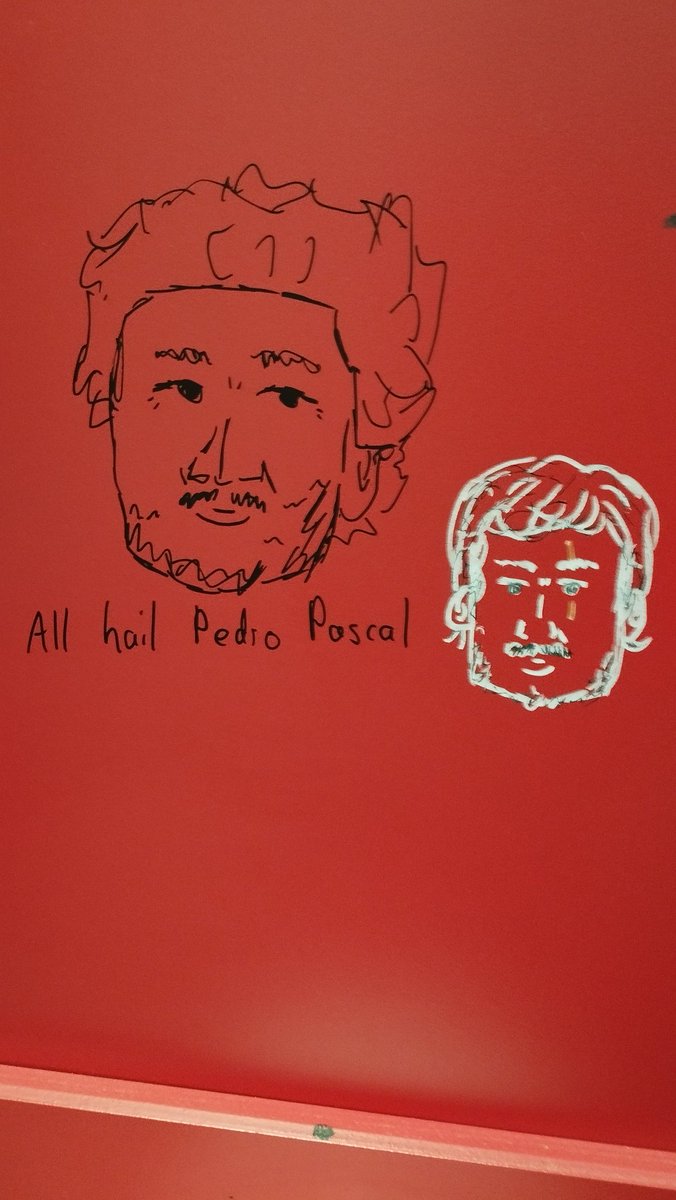 All hail Pedro Pascal